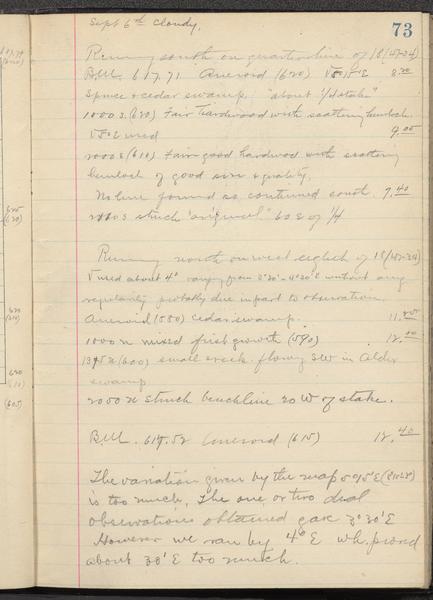 73
Sept 6th Cloudy.
Running south on quarterline of 18 (47-24)
B.M. 617.71 Aneroid (620) V 5°15'E 8.30
Spruce & cedar swamp "about 1/4 stake"
1000 S (620) Fair hardwood with scattering hemlock
V 5° E used 9.05
2000 S (610) Fair good hardwood with scattering
hemlock of good size & quality.
No line found as continued south 9.40
struck "original" 60 S of 1/4
Running north on west eighth of 18 (47-24)
V used about 4° varying from 3°30' - 4°30'E without any
regularity probably due in part to observation
Aneroid (580) Cedar swamp. 11.
1000 N mixed first growth (590) 12.00
(600) small creek flowing SW in Alder
swamp
2050 N struck benchline 20 W of stake.
B.M. 617.52 Aneroid (615) 12.40
The variation given by the map 5°45'E
is too much. The one or two dial
observations obtained gave 3°30'E
However we ran by 4° E wh. proved
about 30' E too much.
625
(620)
620
620
(605)